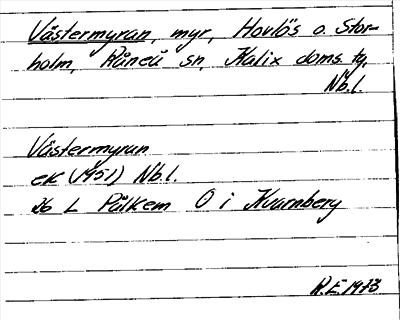 Västermyran, myr, Hovlös o. Stor-
holm, Råneå sn, Kalix doms. tg,
Nb.l.
Västermyran
ek (1951) Nb.l.
L Pålkem O i Kvarnberg
R.E. 1973